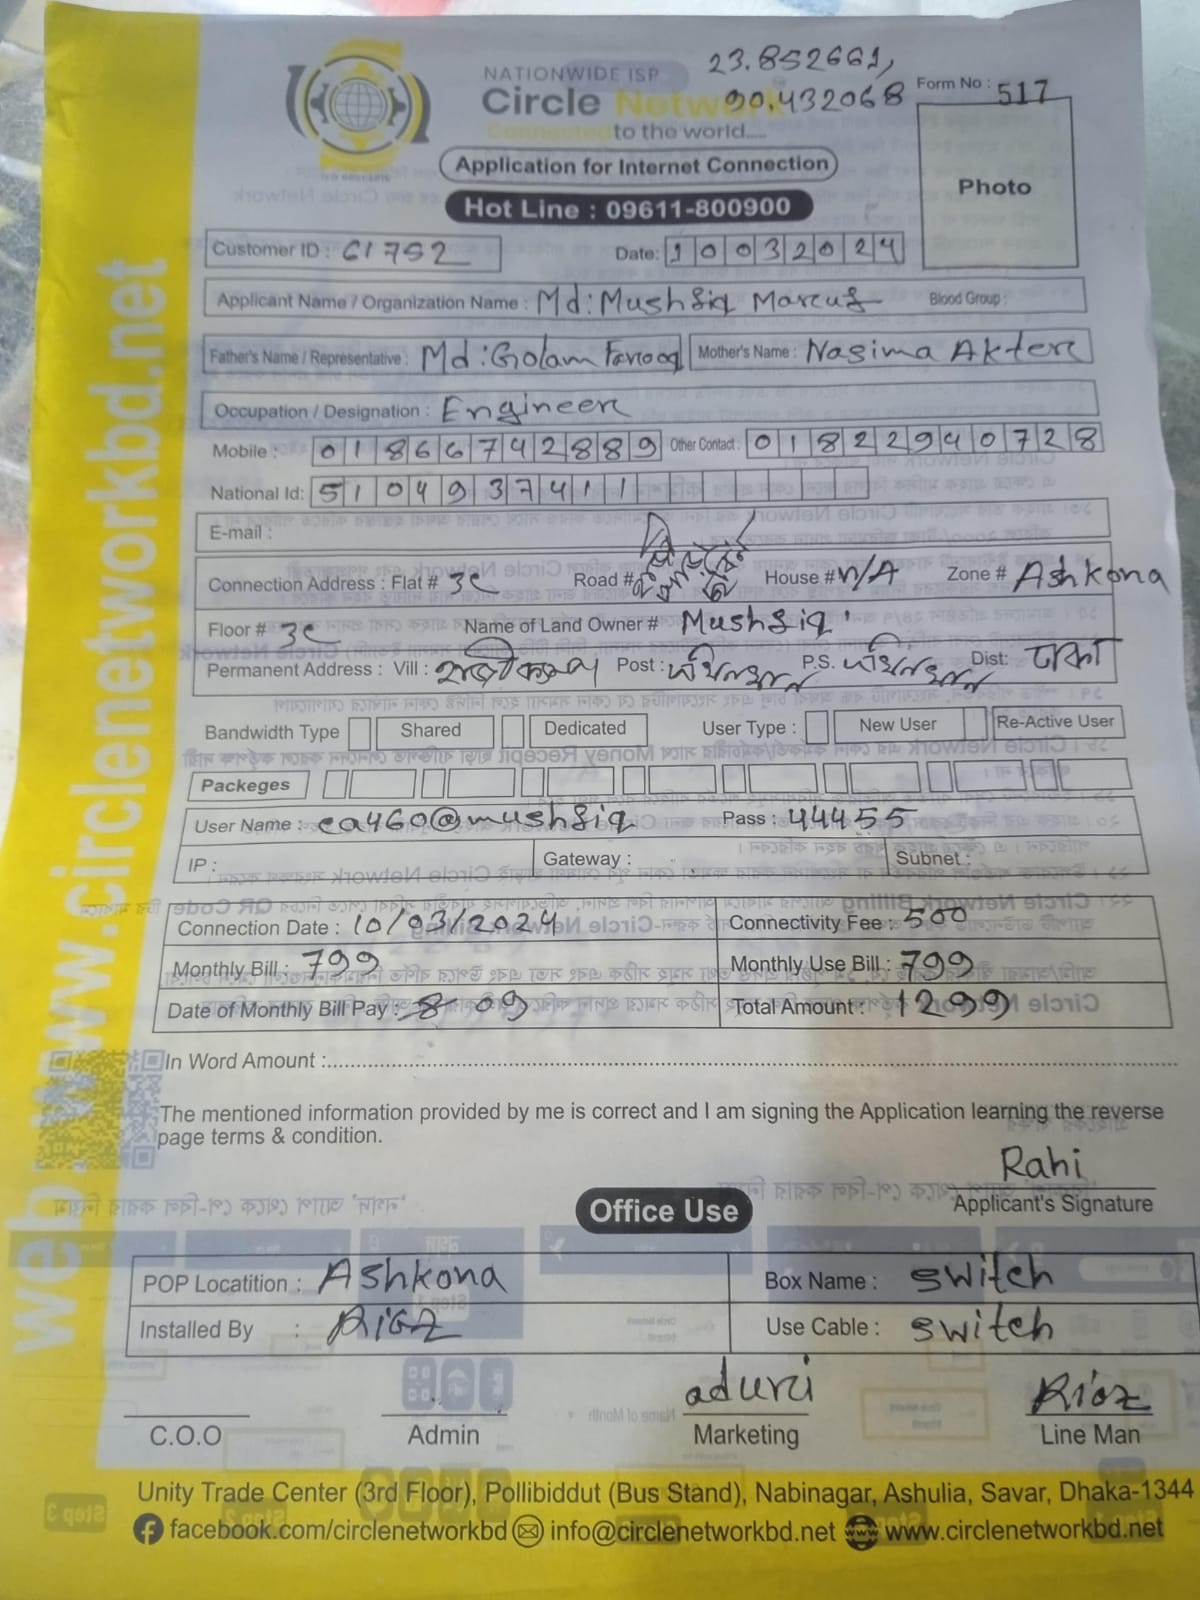 23.852661,
NATIONWIDE ISP
90.432068
Form No : 517
Circle Network
Connected to the world.....
Application for Internet Connection
Photo
Hot Line : 09611-800900
Customer ID : 61752
Date: 10032024
Applicant Name / Organization Name : Md: Mushfiq Marcuf
Blood Group :
Father's Name / Representative : Md: Golam Farooq
Mother's Name : Nasima Akter
Occupation / Designation : Engineer
Mobile : 01866742889
Other Contact : 01822940728
National Id: 5104937411
E-mail :
Connection Address : Flat # 3C
Road #
House # N/A
Zone # Ashkona
Floor # 3C
Name of Land Owner # Mushfiq
Permanent Address : Vill :
Post : দক্ষিনখান
P.S. দক্ষিনখান
Dist: ঢাকা
Bandwidth Type
Shared
Dedicated
User Type :
New User
Re-Active User
Packeges
User Name : ca460@mushfiq
Pass : 44455
IP :
Gateway :
Subnet :
Connection Date : 10/03/2024
Connectivity Fee : 500
Monthly Bill : 799
Monthly Use Bill : 799
Date of Monthly Bill Pay : 8 09
Total Amount : 1299
In Word Amount :
The mentioned information provided by me is correct and I am signing the Application learning the reverse
page terms & condition.
Rahi
Applicant's Signature
Office Use
POP Locatition : Ashkona
Box Name : switch
Installed By : Riaz
Use Cable : switch
aduri
Riaz
C.O.O
Admin
Marketing
Line Man
Unity Trade Center (3rd Floor), Pollibiddut (Bus Stand), Nabinagar, Ashulia, Savar, Dhaka-1344
facebook.com/circlenetworkbd info@circlenetworkbd.net www.circlenetworkbd.net
web: www.circlenetworkbd.net